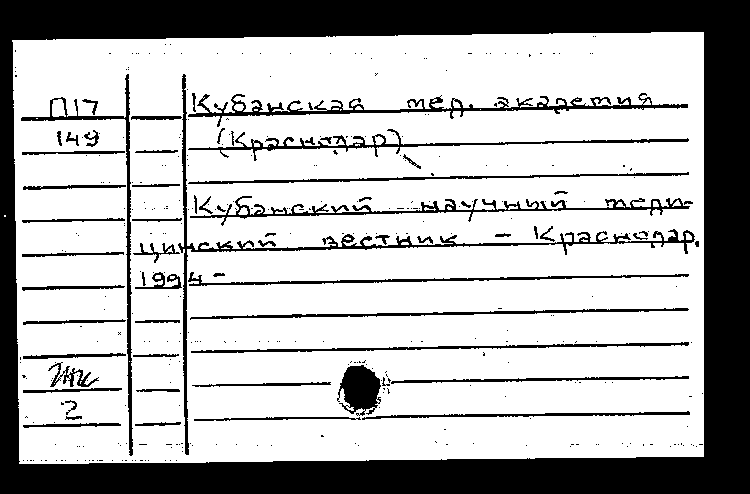 П17 Кубанская мед. академия
149 (Краснодар)
Кубанский научный меди-
цинский вестник - Краснодар,
1994 -
2